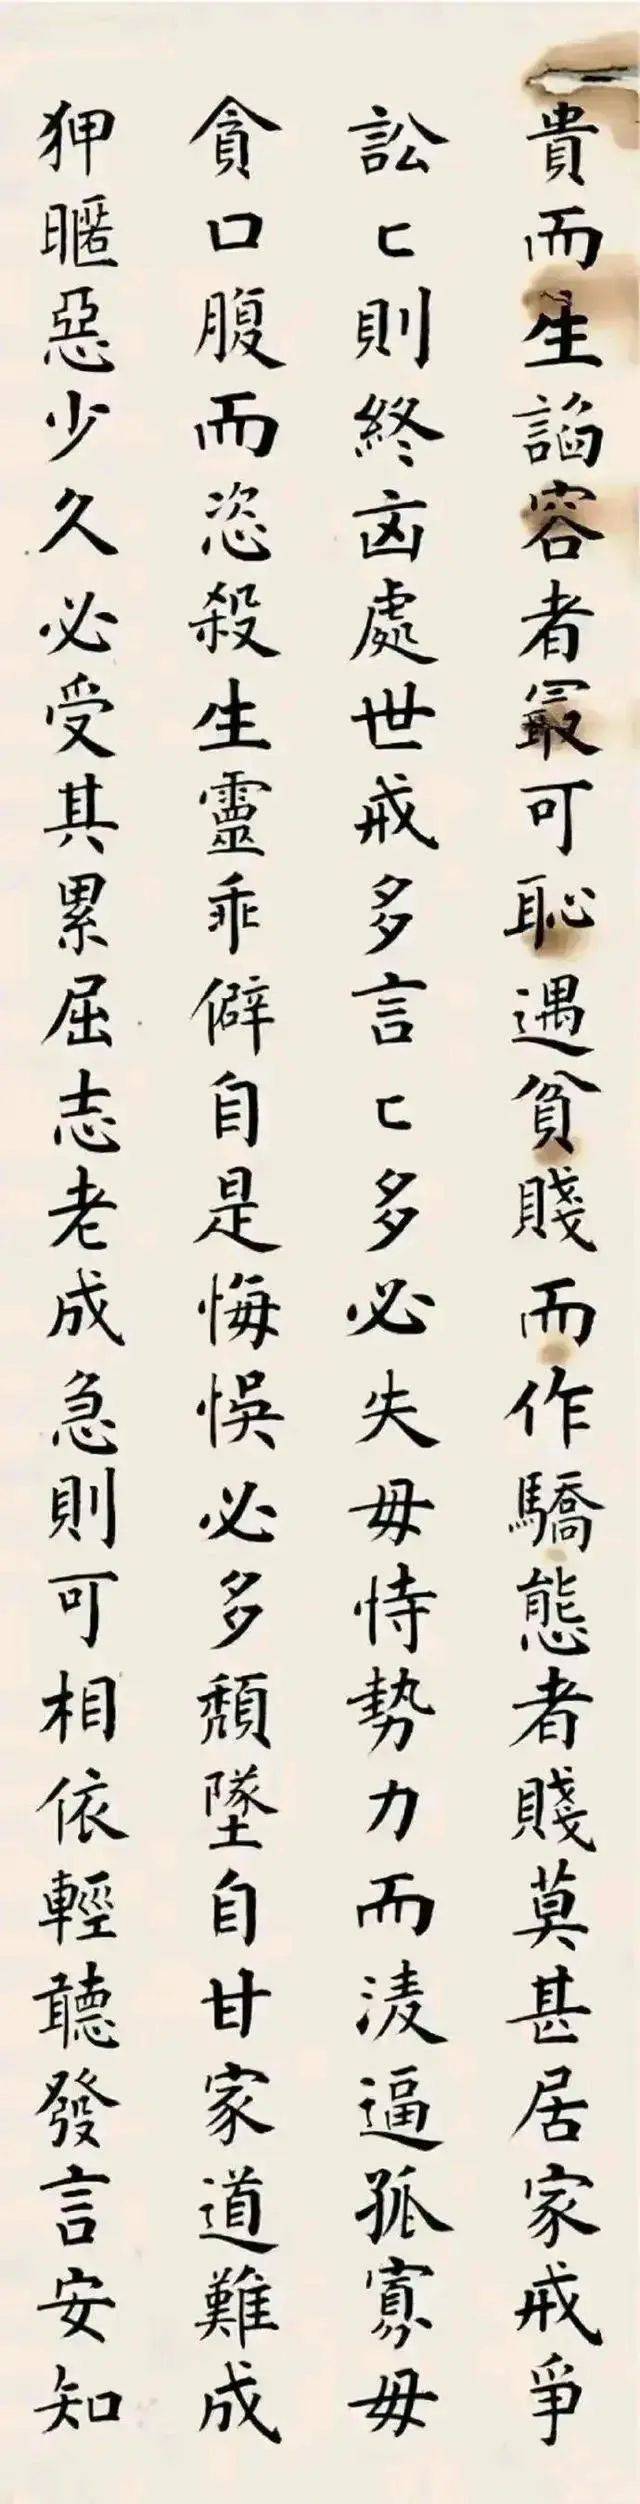 貴而生諂容者最可恥遇貧賤而作驕態者賤莫甚居家戒爭
訟〻則終㐫處世戒多言〻多必失毋恃勢力而淩逼孤寡毋
貪口腹而恣殺生靈乖僻自是悔悞必多頽墜自甘家道難成
狎暱惡少久必受其累屈志老成急則可相依輕聽發言安知